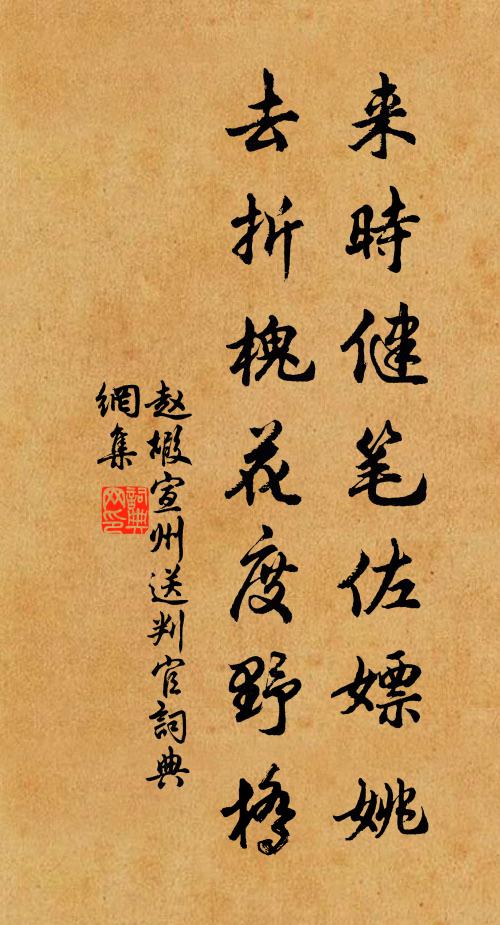 来時健笔佐嫖姚
去折槐花度野橋
赵嘏宣州送判官詞典
網集
詞典网印